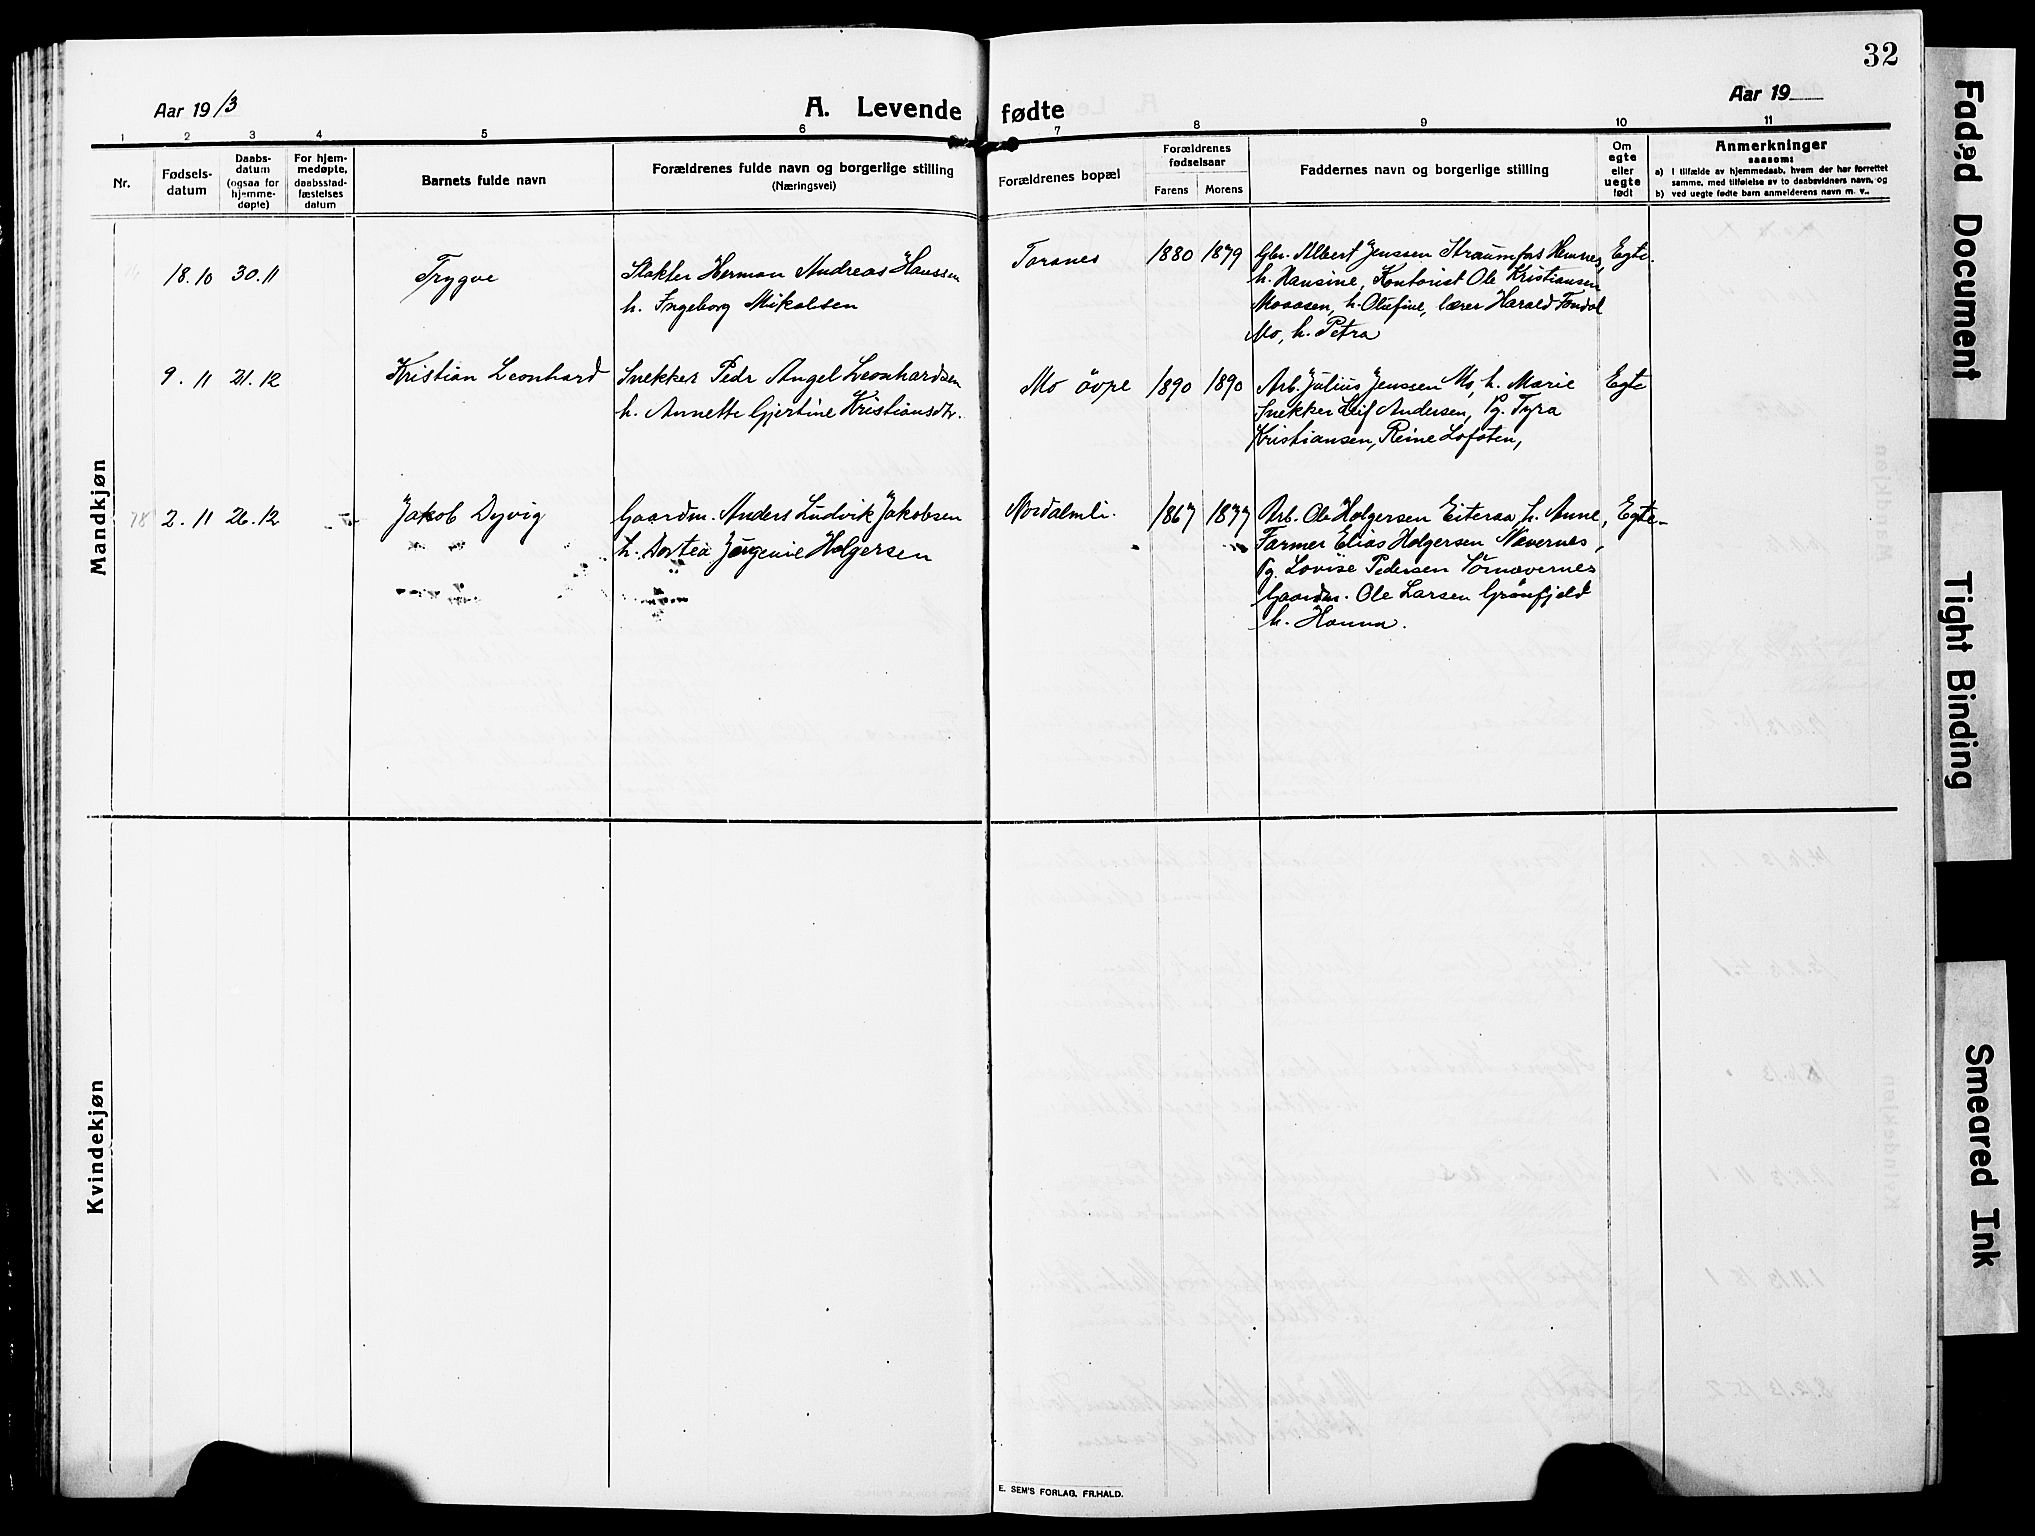 32
Aar 1913
A. Levende fødte
Aar 19
1 2 3 4 5 6 7 8 9 10 11
Nr.
Fødsels-
datum
Daabs-
datum
(ogsaa for
hjemme-
døpte)
For hjem-
medøpte,
daabsstad-
fæstelses
datum
Barnets fulde navn
Forældrenes fulde navn og borgerlige stilling
(Næringsvei)
Forældrenes bopæl
Forældrenes
fødselsaar
Farens Morens
Faddernes navn og borgerlige stilling
Om
egte
eller
uegte
født
Anmerkninger
saasom:
a) I tilfælde av hjemmedaab, hvem der har forrettet
samme, med tilføielse av to daabsvidners navn, og
b) ved uegte fødte barn anmelderens navn m. v..
Mandkjøn
18.10 30.11 Trygve
Slakter Herman Andreas Hanssen
h. Ingeborg Mikalsen
Toranes 1880 1879
Gbr. Albert Jenssen Straumfors Hemnes,
h. Hansine, Kontorist Ole Kristiansen
Mosaasen, h. Olufine, lærer Harald Tondal
Mo, h. Petra
Egte.
9.11 21.12 Kristian Leonhard
Snekker Peder Angel Leonhardsen
h. Annette Gjertine Kristiansdtr.
Mo övre 1890 1890
Arb. Julius Jenssen Mo, h. Marie
Snekker Leif Andersen, Pg. Tyra
Kristiansen, Reine Lofoten,
Egte
78 2.11 26.12 Jakob Dyvig
Gaardm. Anders Ludvik Jakobsen
h. Dortea Jørgenie Holgersen
Nordalmli. 1867 1877
Arb. Ole Holgersen Eiteraa h. Anne,
Farmer Elias Holgersen Nævernes,
Pg. Lovise Pedersen Sörnævernes
Gaardm. Ole Larsen Grönfjeld
h. Hanna.
Egte
Kvindekjøn
E. SEM'S FORLAG, FR.HALD.
Faded Document
Tight Binding
Smeared Ink